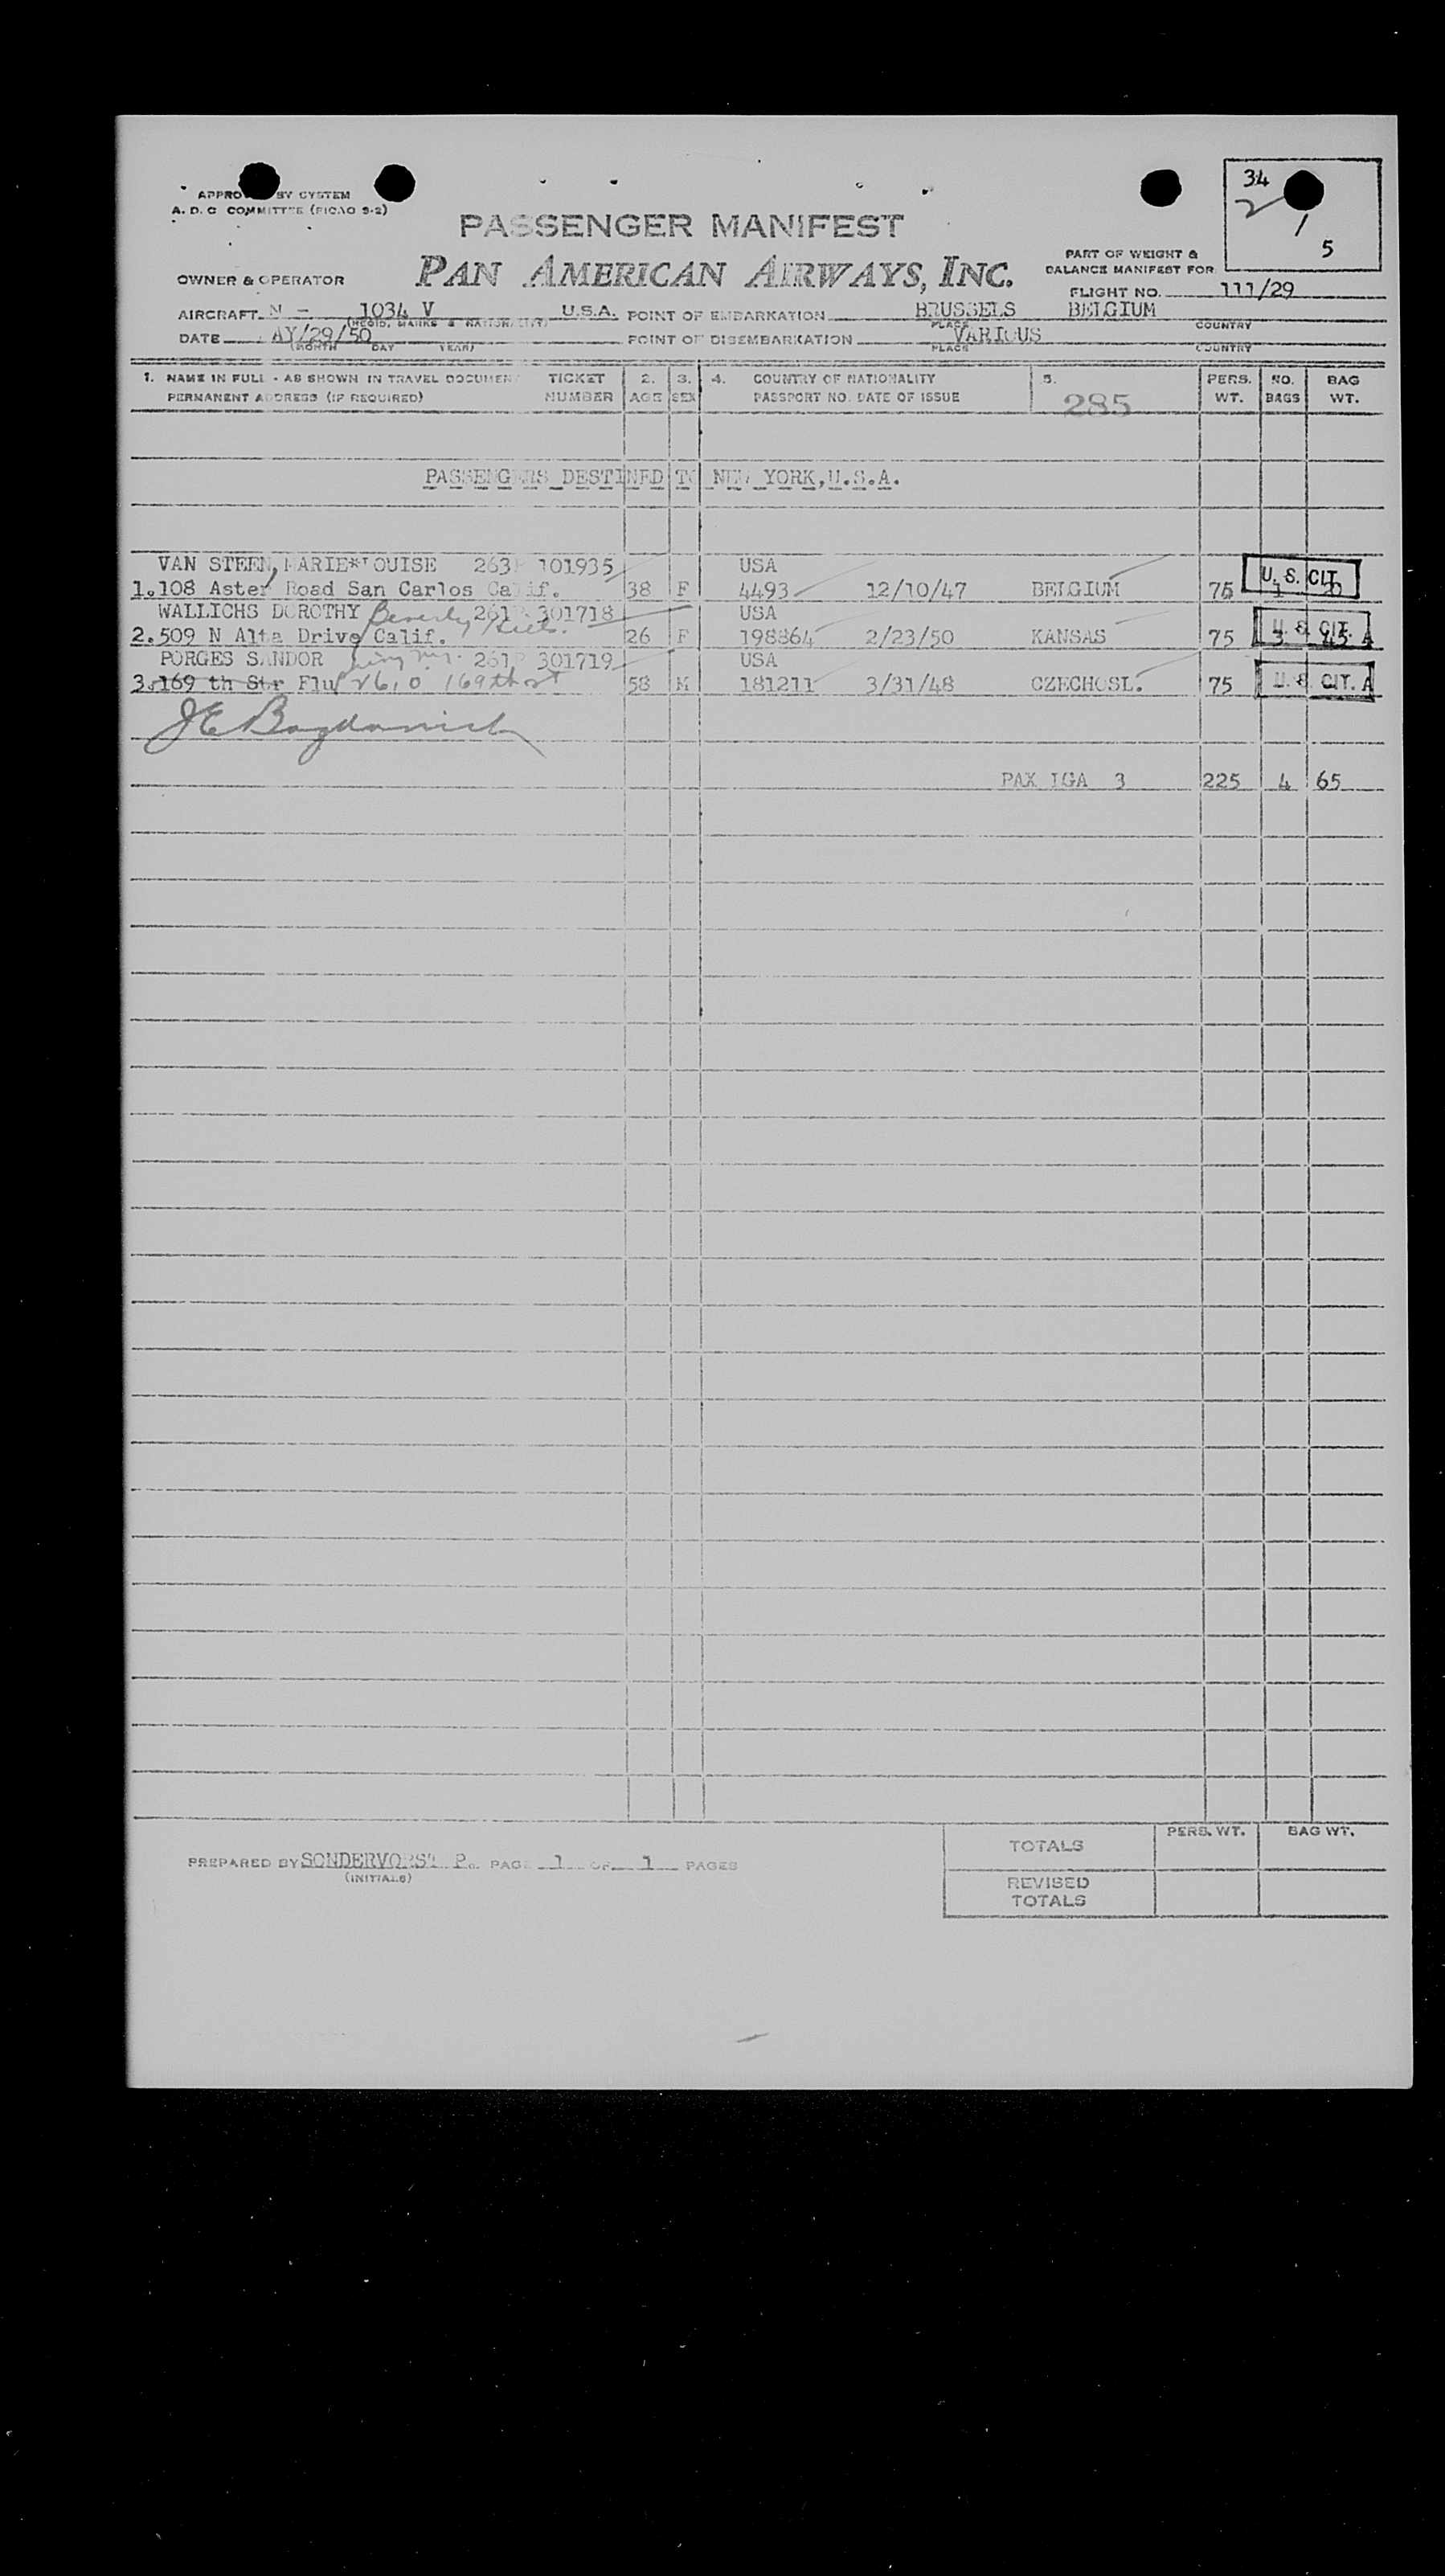 34
2
1
5
APPRO BY SYSTEM
A. D. C COMMITTEE (PICAO 9-2)
PASSENGER MANIFEST
PAN AMERICAN AIRWAYS, INC.
PART OF WEIGHT &
BALANCE MANIFEST FOR
OWNER & OPERATOR
FLIGHT NO. 111/29
AIRCRAFT N - 1034 V U.S.A. POINT OF EMBARKATION BRUSSELS BELGIUM
(REGIS. MARKS & NATIONALITY) PLACE COUNTRY
DATE AY/29/50 POINT OF DISEMBARKATION VARIOUS
(MONTH DAY YEAR) PLACE COUNTRY
1. NAME IN FULL - AS SHOWN IN TRAVEL DOCUMENT TICKET 2. 3. 4. COUNTRY OF NATIONALITY 5. PERS. NO. BAG
PERMANENT ADDRESS (IF REQUIRED) NUMBER AGE SEX PASSPORT NO. DATE OF ISSUE 285 WT. BAGS WT.
PASSENGERS DESTINED TO NEW YORK, U.S.A.
VAN STEEN, MARIE*LOUISE 263 101935 USA
1.108 Aster Road San Carlos Calif. 38 F 4493 12/10/47 BELGIUM 75 1 20 U.S. CIT
WALLICHS DOROTHY Beverly Hills. 261 301718 USA
2.509 N Alta Drive Calif. 26 F 198864 2/23/50 KANSAS 75 3 45 U.S. CIT. A
PORGES SANDOR 261 301719 USA
3.169 th Str Flu 169th st 58 M 181211 3/31/48 CZECHOSL. 75 U.S. CIT. A
PAX IGA 3 225 4 65
TOTALS PERS. WT. BAG WT.
PREPARED BY SONDERVORST P. PAGE 1 OF 1 PAGES
(INITIALS)
REVISED
TOTALS